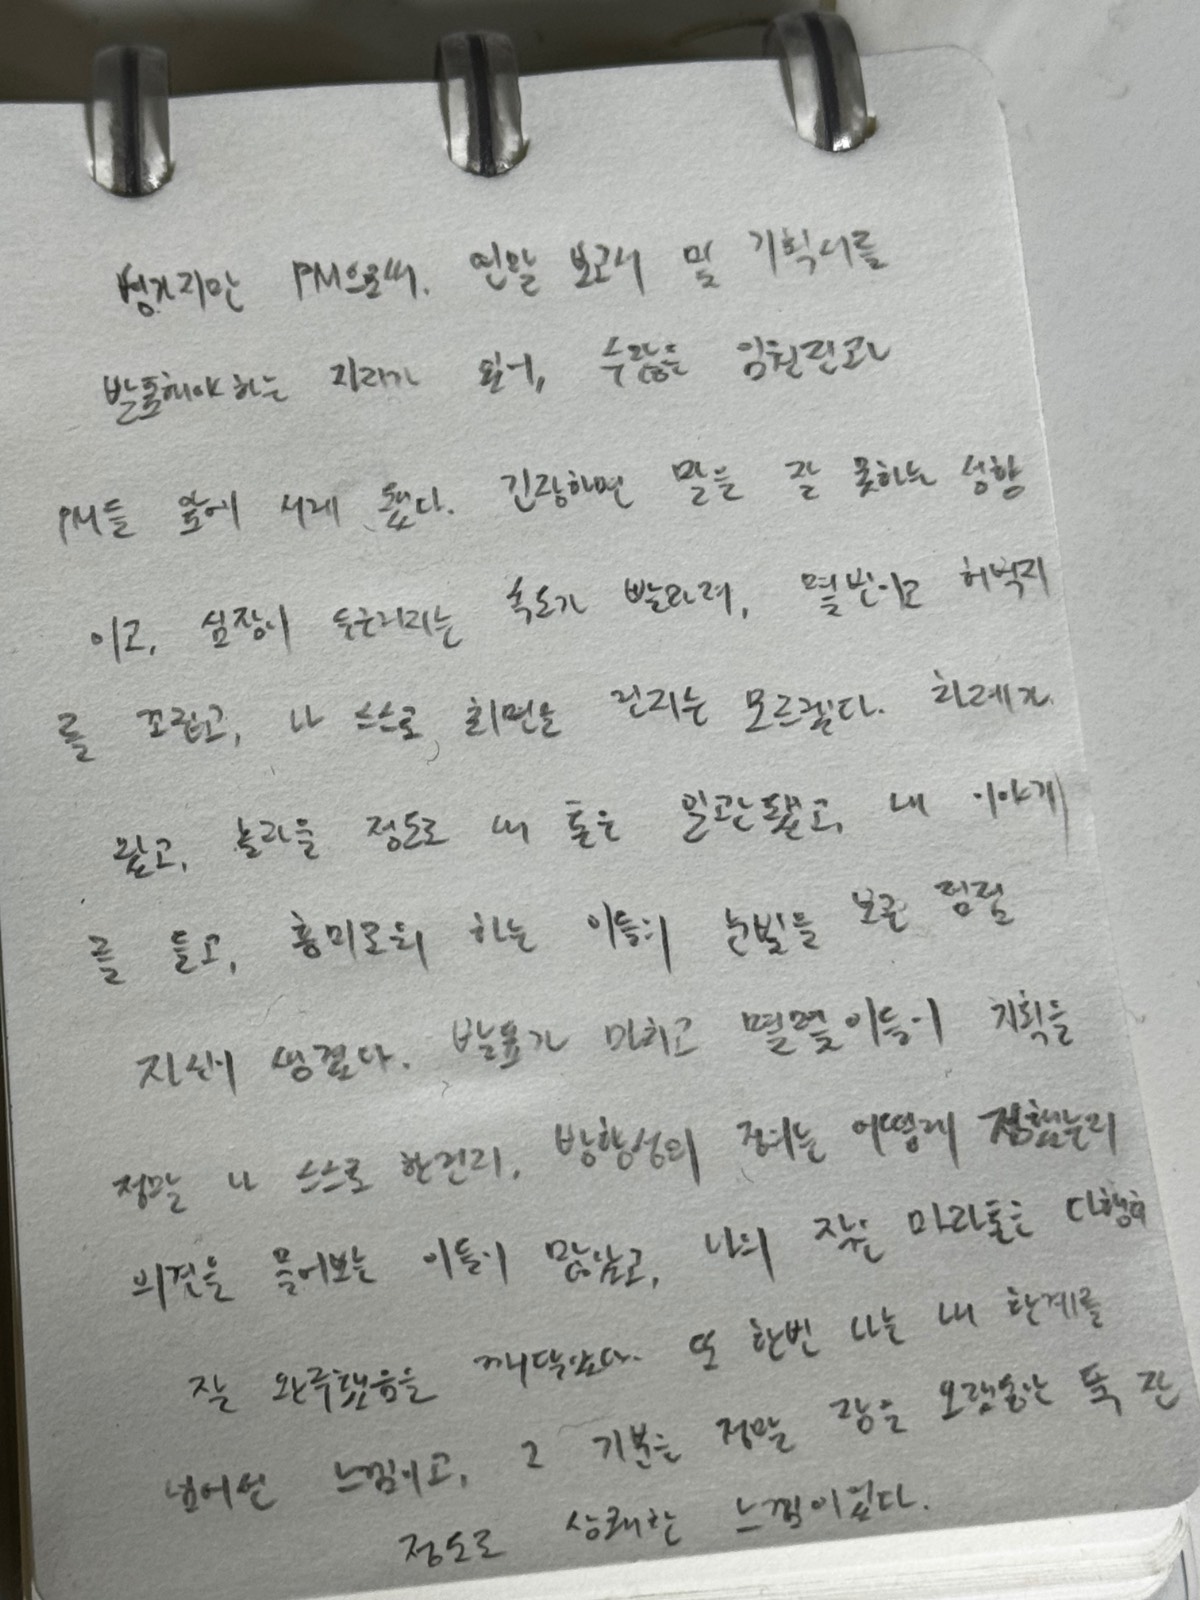 PM으로써. 연말 보고서 및 기획서를
발표해야하는 자리가 왔어, 수많은 임원진과
PM들 앞에 서게 됐다. 긴장하면 말을 잘 못하는 성향
이고, 심장이 두근거리는 속도가 빨라져, 몇번이고 허벅지
를 꼬집고, 나 스스로 최면을 건지는 모르겠다. 차례가
왔고, 놀라울 정도로 내 톤은 일관됐고, 내 이야기
를 듣고, 흥미로워 하는 이들의 눈빛을 보곤 점점
자신이 생겼다. 발표가 마치고 몇몇 이들이 기획을
정말 나 스스로 한건지, 방향성의 정의는 어떻게 정했는지
의견을 물어보는 이들이 많았고, 나의 작은 마라톤은 다행히
잘 완주했음을 깨달았다. 또 한번 나는 내 한계를
넘어선 느낌이고, 그 기분은 정말 잠을 오랫동안 푹 잔
정도로 상쾌한 느낌이었다.